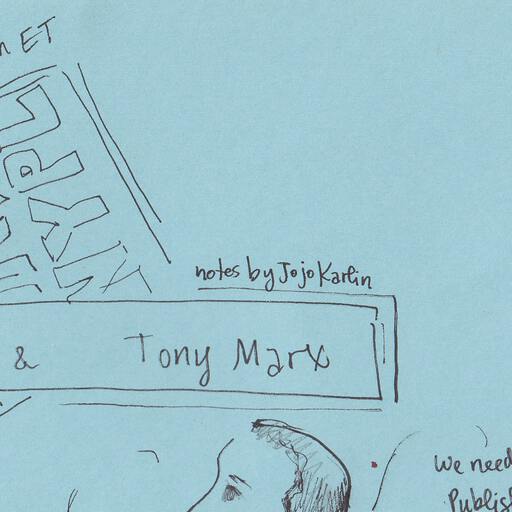 ET
NYPL
notes by Jojo Karlin
& Tony Marx
We need
Publis